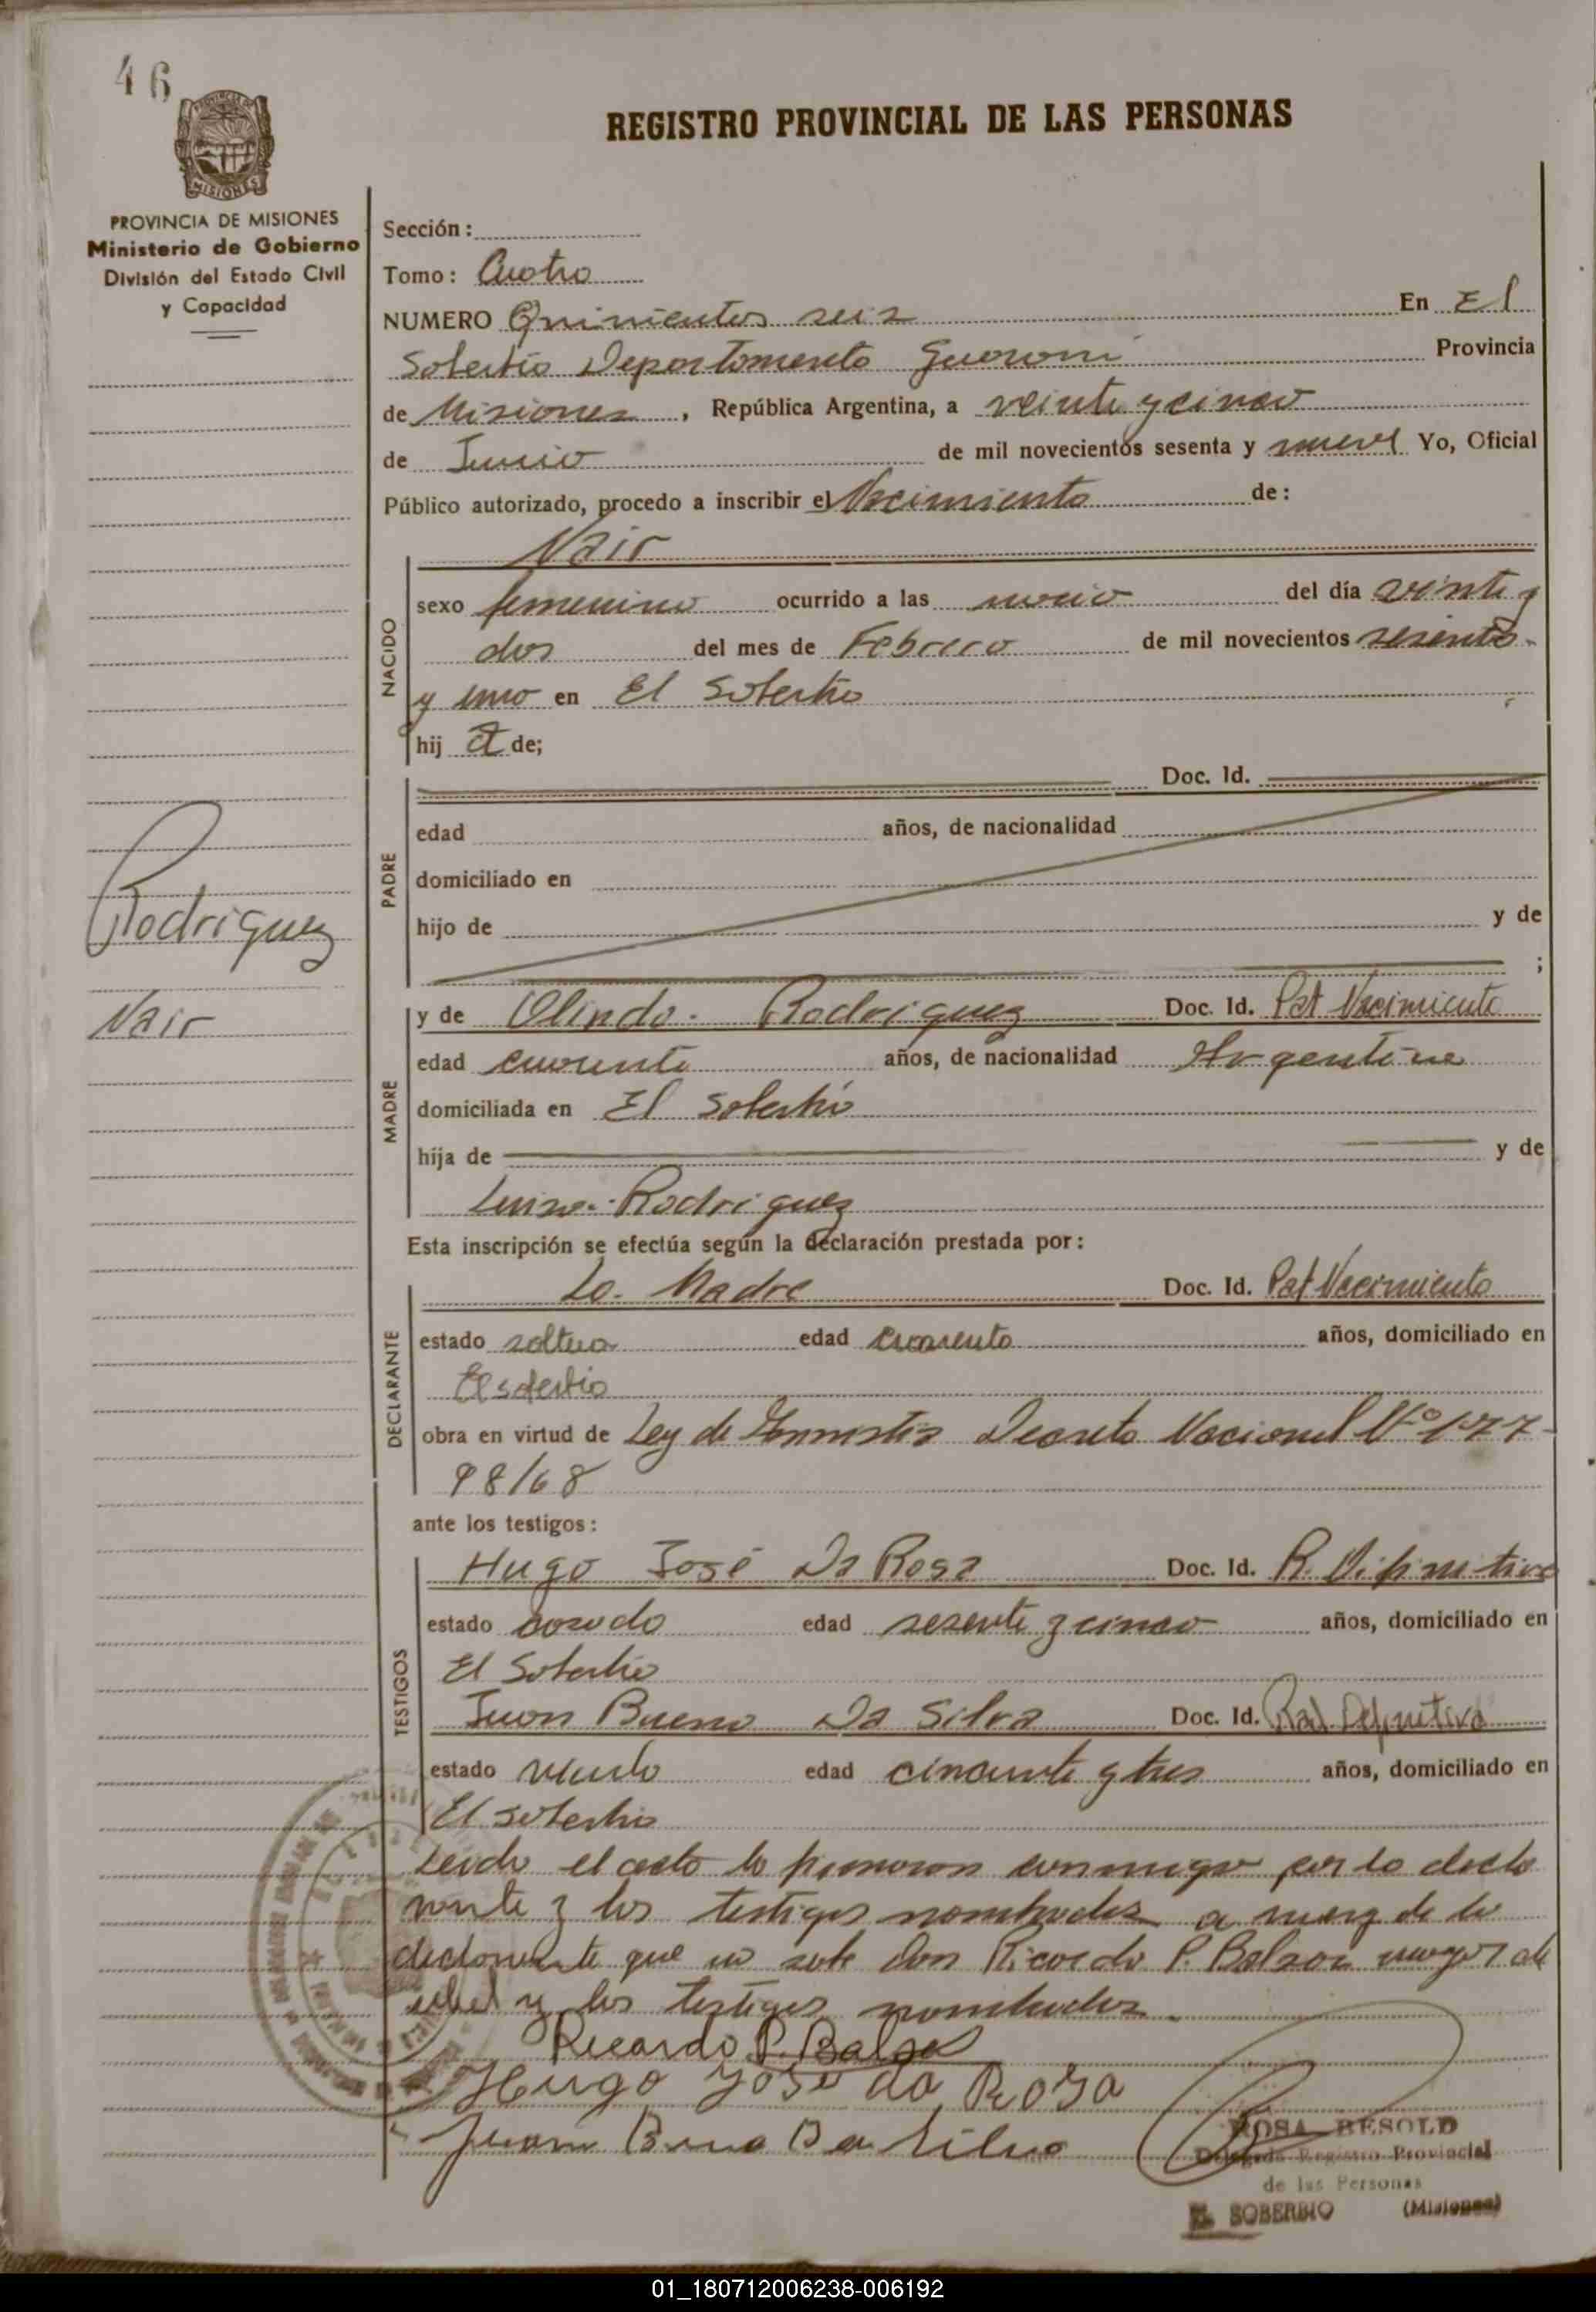 46
REGISTRO PROVINCIAL DE LAS PERSONAS
PROVINCIA DE MISIONES
Ministerio de Gobierno
División del Estado Civil
y Capacidad
Rodriguez
Nair
Sección:
Tomo: Cuatro
NUMERO Quinientos seis En El
Soberbio Departamento Guarani Provincia
de Misiones, República Argentina, a veinte y cinco
de Junio de mil novecientos sesenta y nueve Yo, Oficial
Público autorizado, procedo a inscribir el Nacimiento de:
Nair
NACIDO
sexo femenino ocurrido a las del día veinte y
dos del mes de Febrero de mil novecientos sesenta
y uno en El Soberbio
hij a de;
PADRE
Doc. Id.
edad años, de nacionalidad
domiciliado en
hijo de y de
;
MADRE
y de Olinda Rodriguez Doc. Id. Pat Nacimiento
edad cuarenta años, de nacionalidad Argentina
domiciliada en El Soberbio
hija de y de
Luisa Rodriguez
Esta inscripción se efectúa según la declaración prestada por:
DECLARANTE
La Madre Doc. Id. Pat Nacimiento
estado soltera edad cuarenta años, domiciliado en
El soberbio
obra en virtud de Ley de Amnistia Decreto Nacional Nº 177-
98/68
ante los testigos:
TESTIGOS
Hugo José Da Rosa Doc. Id. R. Difinitiva
estado casado edad sesenta y cinco años, domiciliado en
El Soberbio
Juan Bueno Da Silva Doc. Id. Rad. Definitiva
estado viudo edad cincuenta y tres años, domiciliado en
El soberbio
Leida el acta la firmaron conmigo por la decla
rante y los testigos nombrados a ruego de la
declarante que no sabe Don Ricardo P. Balzar mayor de
edad y los testigos nombrados
Ricardo P. Balzar
Hugo José da Rosa
Juan Bueno Da Silva
ROSA BESOLD
Delegada Registro Provincial
de las Personas
EL SOBERBIO (Misiones)
01_180712006238-006192